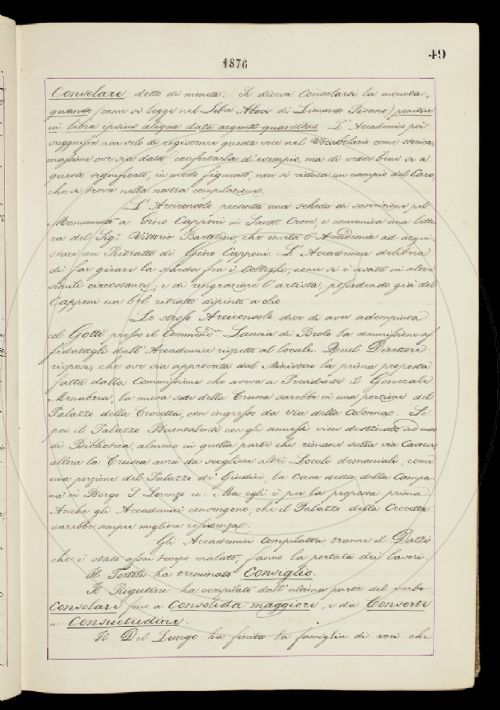 49
1876
Consolare detto di moneta. Si diceva Consolarsi la moneta,
quando (come si legge nel Liber Abaci di Lionardo Pisano) ponitur
in libra ipsius aliqua data argenti quantitas. L'Accademia poi
suggerisce non solo di registrare questa voce nel Vocabolario come
mazione ove sia dato confortarla d'esempio, ma di veder bene se a
questo significato, in modo figurato, non si riduca un esempio del Caro,
che si trova nella nostra compilazione.
L'Arciconsolo presenta una scheda di soscrizione pel
Monumento a Gino Capponi in Santa Croce, e comunica una lette
ra del Sigr. Vittorio che invita l'Accademia ad acqui
stare un Ritratto di Gino Capponi. L'Accademia delibera
di far girare la scheda fra i Colleghi, come si è usato in altre
simili circostanze, e di ringraziare l'artista, possedendo già del
Capponi un bel ritratto dipinto a olio.
Lo stesso Arciconsolo dice di aver adempiuta
col Gotti presso il Commend. Lancia di Brolo la commissione af
fidatagli dall'Accademia rispetto al locale. Quel Direttore
rispose, che ove sia approvata dal Ministero la prima proposta
fatta dalla Commissione che aveva a Presidente il Generale
Menabrea, la nuova sede della Crusca sarebbe in una porzione del
Palazzo della Crocetta, con ingresso da via della Colonna. Se
poi il Palazzo Buontalenti con gli annessi vien destinato ad uso
di Biblioteca, almeno in quella parte che rimane sulla via Cavour
allora la Crusca avrà da scegliere altri Locali demaniali, come
una porzione del Palazzo de' Giudici, la Casa detta della Campa
na in Borgo S. Lorenzo ec. Ma egli è per la proposta prima.
Anche gli Accademici convengono, che il Palazzo della Crocetta
sarebbe sempre migliore residenza.
Gli Accademici compilatori tranne il Dazzi
che è stato ogni tempo malato, fanno la portata dei lavori.
Il Tortoli ha terminato Consiglio.
Il Rigutini ha compilato dall'ultima parte del verbo
Consolare fino a Consolida maggiore, e da Consorte
a Consuetudine.
Il Del Lungo ha finito la famiglia di voci che